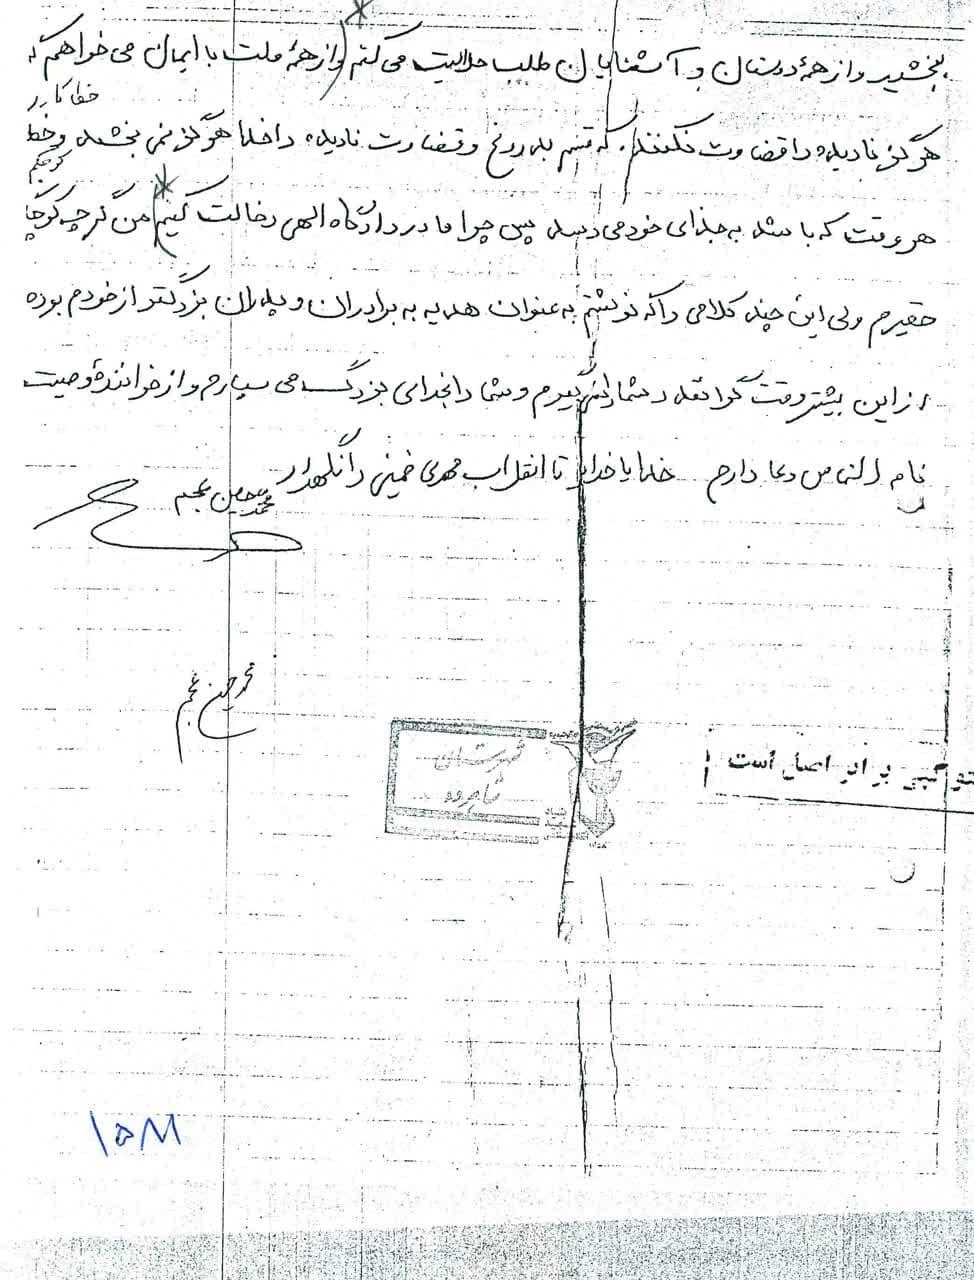 ببخشید و از همهٔ دوستان و آشنایان طلب حلالیت می کنم و از همهٔ ملت با ایمان می خواهم که
هرگز نادیده را قضاوت نکنند. که قسم به دروغ و قضاوت نادیده را خدا هرگز نمی بخشد و
خطا کار در
هر وقت که باشد به جزای خود می رسد پس چرا ما در دادگاه الهی دخالت کنیم من گرچه کوچک
کوچکم
حقیرم ولی این چند کلامی را که نوشتم به عنوان هدیه به برادران و پدران بزرگتر از خودم بوده
از این بیشتر وقت گرانقدر شما را نمی گیرم و شما را بخدای بزرگ می سپارم و از خوانندهٔ وصیت
نامه التماس دعا دارم خدایا خدایا تا انقلاب مهدی خمینی را نگهدار
محمد حسین عجم
محمد حسین عجم
شهرستان
شاهرود
فتوکپی برابر اصل است
۱۵۸۱